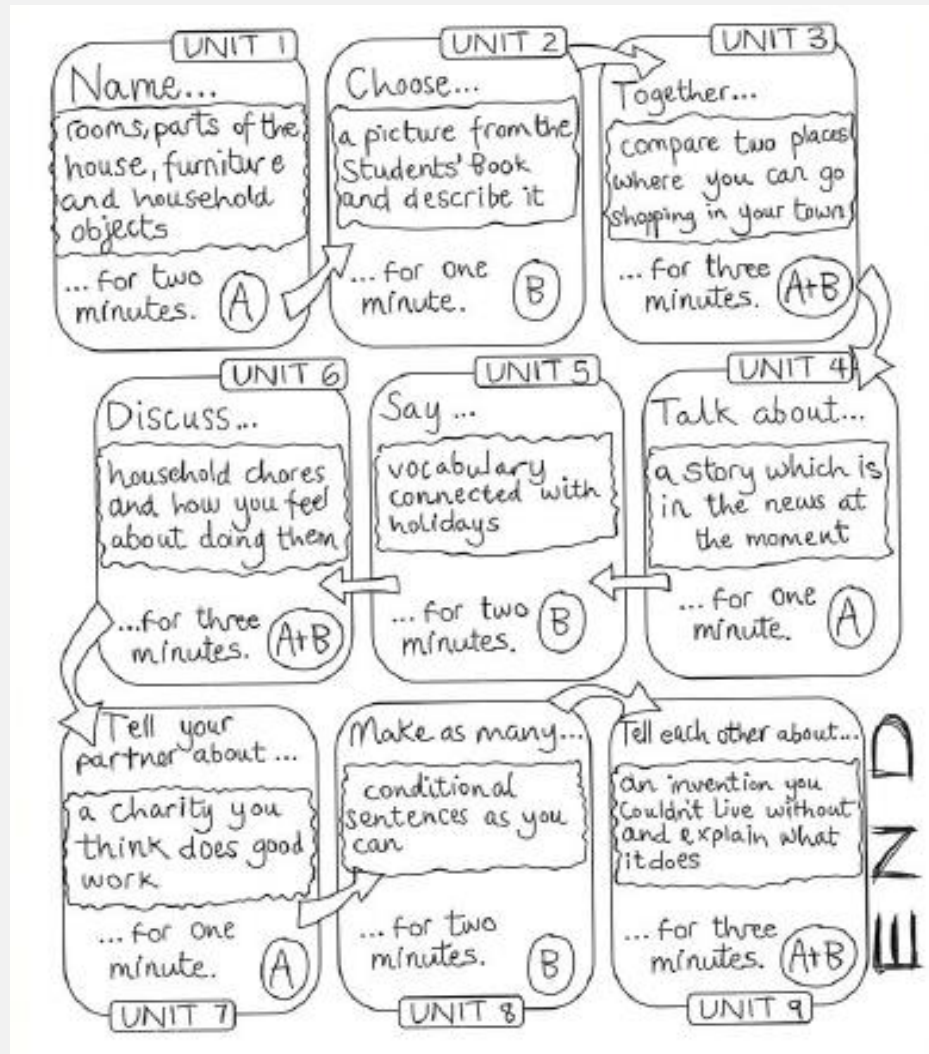 UNIT 1
Name...
rooms, parts of the
house, furniture
and household
objects
... for two
minutes.
A
UNIT 2
Choose...
a picture from the
Students' Book
and describe it
... for one
minute.
B
UNIT 3
Together...
compare two places
where you can go
shopping in your town
... for three
minutes.
A+B
UNIT 4
Talk about...
a story which is
in the news at
the moment
... for one
minute.
A
UNIT 5
Say ...
vocabulary
connected with
holidays
... for two
minutes.
B
UNIT 6
Discuss...
household chores
and how you feel
about doing them
...for three
minutes.
A+B
Tell your
partner about ...
a charity you
think does good
work
... for one
minute.
A
UNIT 7
Make as many...
conditional
sentences as you
can
... for two
minutes.
B
UNIT 8
Tell each other about...
an invention you
couldn't live without
and explain what
it does
... for three
minutes.
A+B
UNIT 9
END